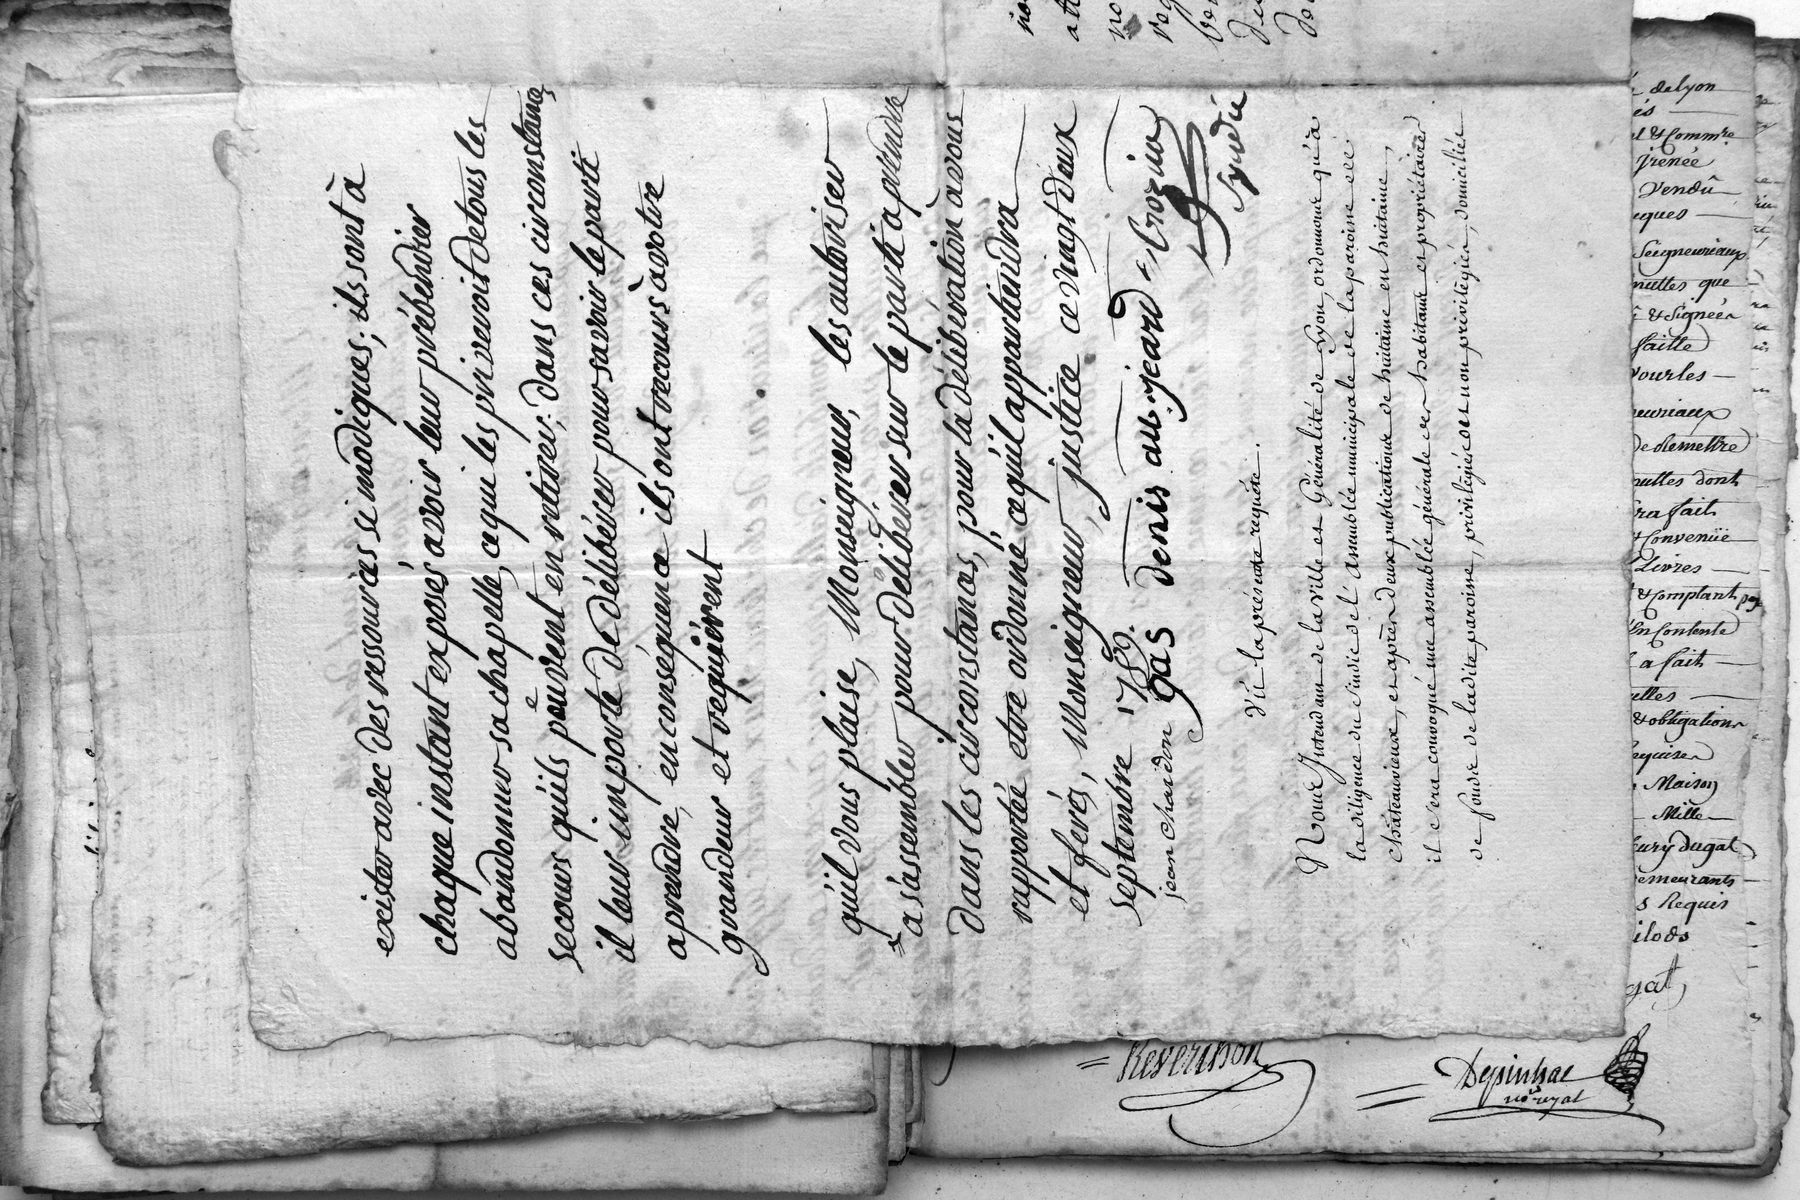 exister avec des ressources si modiques; ils sont à
chaque instant exposés avoir leur prébendier
abandonner sa chapelle, ce qui les priveroit de tous les
secours qu'ils peuvent en retirer. dans ces circonstances
il leur importe de délibérer pour savoir le parti
a prendre, en conséquence ils ont recours à votre
grandeur et requièrent
qu'il vous plaise, Monseigneur, les autoriser
a s'assembler pour délibérer sur le parti a prendre
dans les circonstances, pour la délibération a vous
rapportée etre ordonné ce qu'il appartiendra
et ferés, Monseigneur, justice ce vingt deux
septembre 1789.
jean chardon gas denis au jeard Crozier
Syndic
Vû la présente requête.
Nous Intendant de la ville et Généralité de Lyon, ordonnons qu'à
la diligence du sindic de l'Assemblée municipale de la paroisse de
Châteauvieux, et après deux publications de huitaine en huitaine,
il sera convoqué une assemblée générale des habitans et propriétaires
de fonds de la dite paroisse, privilégiés et non privilégiés, domiciliés
de Lyon
és
et & Comm.re
jrenée
Vendû
Seigneuriaux
nulles que
& Signée
faille
pour les
neuriaux
De Remettre
nulles dont
fra fait
Convenüe
Livres
& Comptant
En Contente
a fait
elles
& obligations
requises
Maison
Mille
eury dugat
emeurants
s Requis
ilods
gat
= Reverchon
= Depinhac
no.re royal